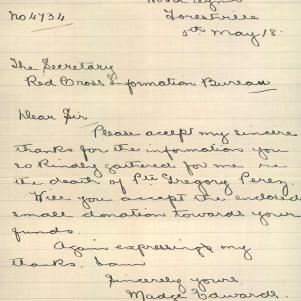 No 4734
Forestville
5th May 18.
The Secretary
Red Cross Information Bureau
Dear Sir
Please accept my sincere
thanks for the information you
so kindly gathered for me re
the death of Pte Gregory Perez.
Will you accept the enclosed
small donation towards your
funds.
Again expressing my
thanks. I am
Sincerely yours.
Madge Edwards.